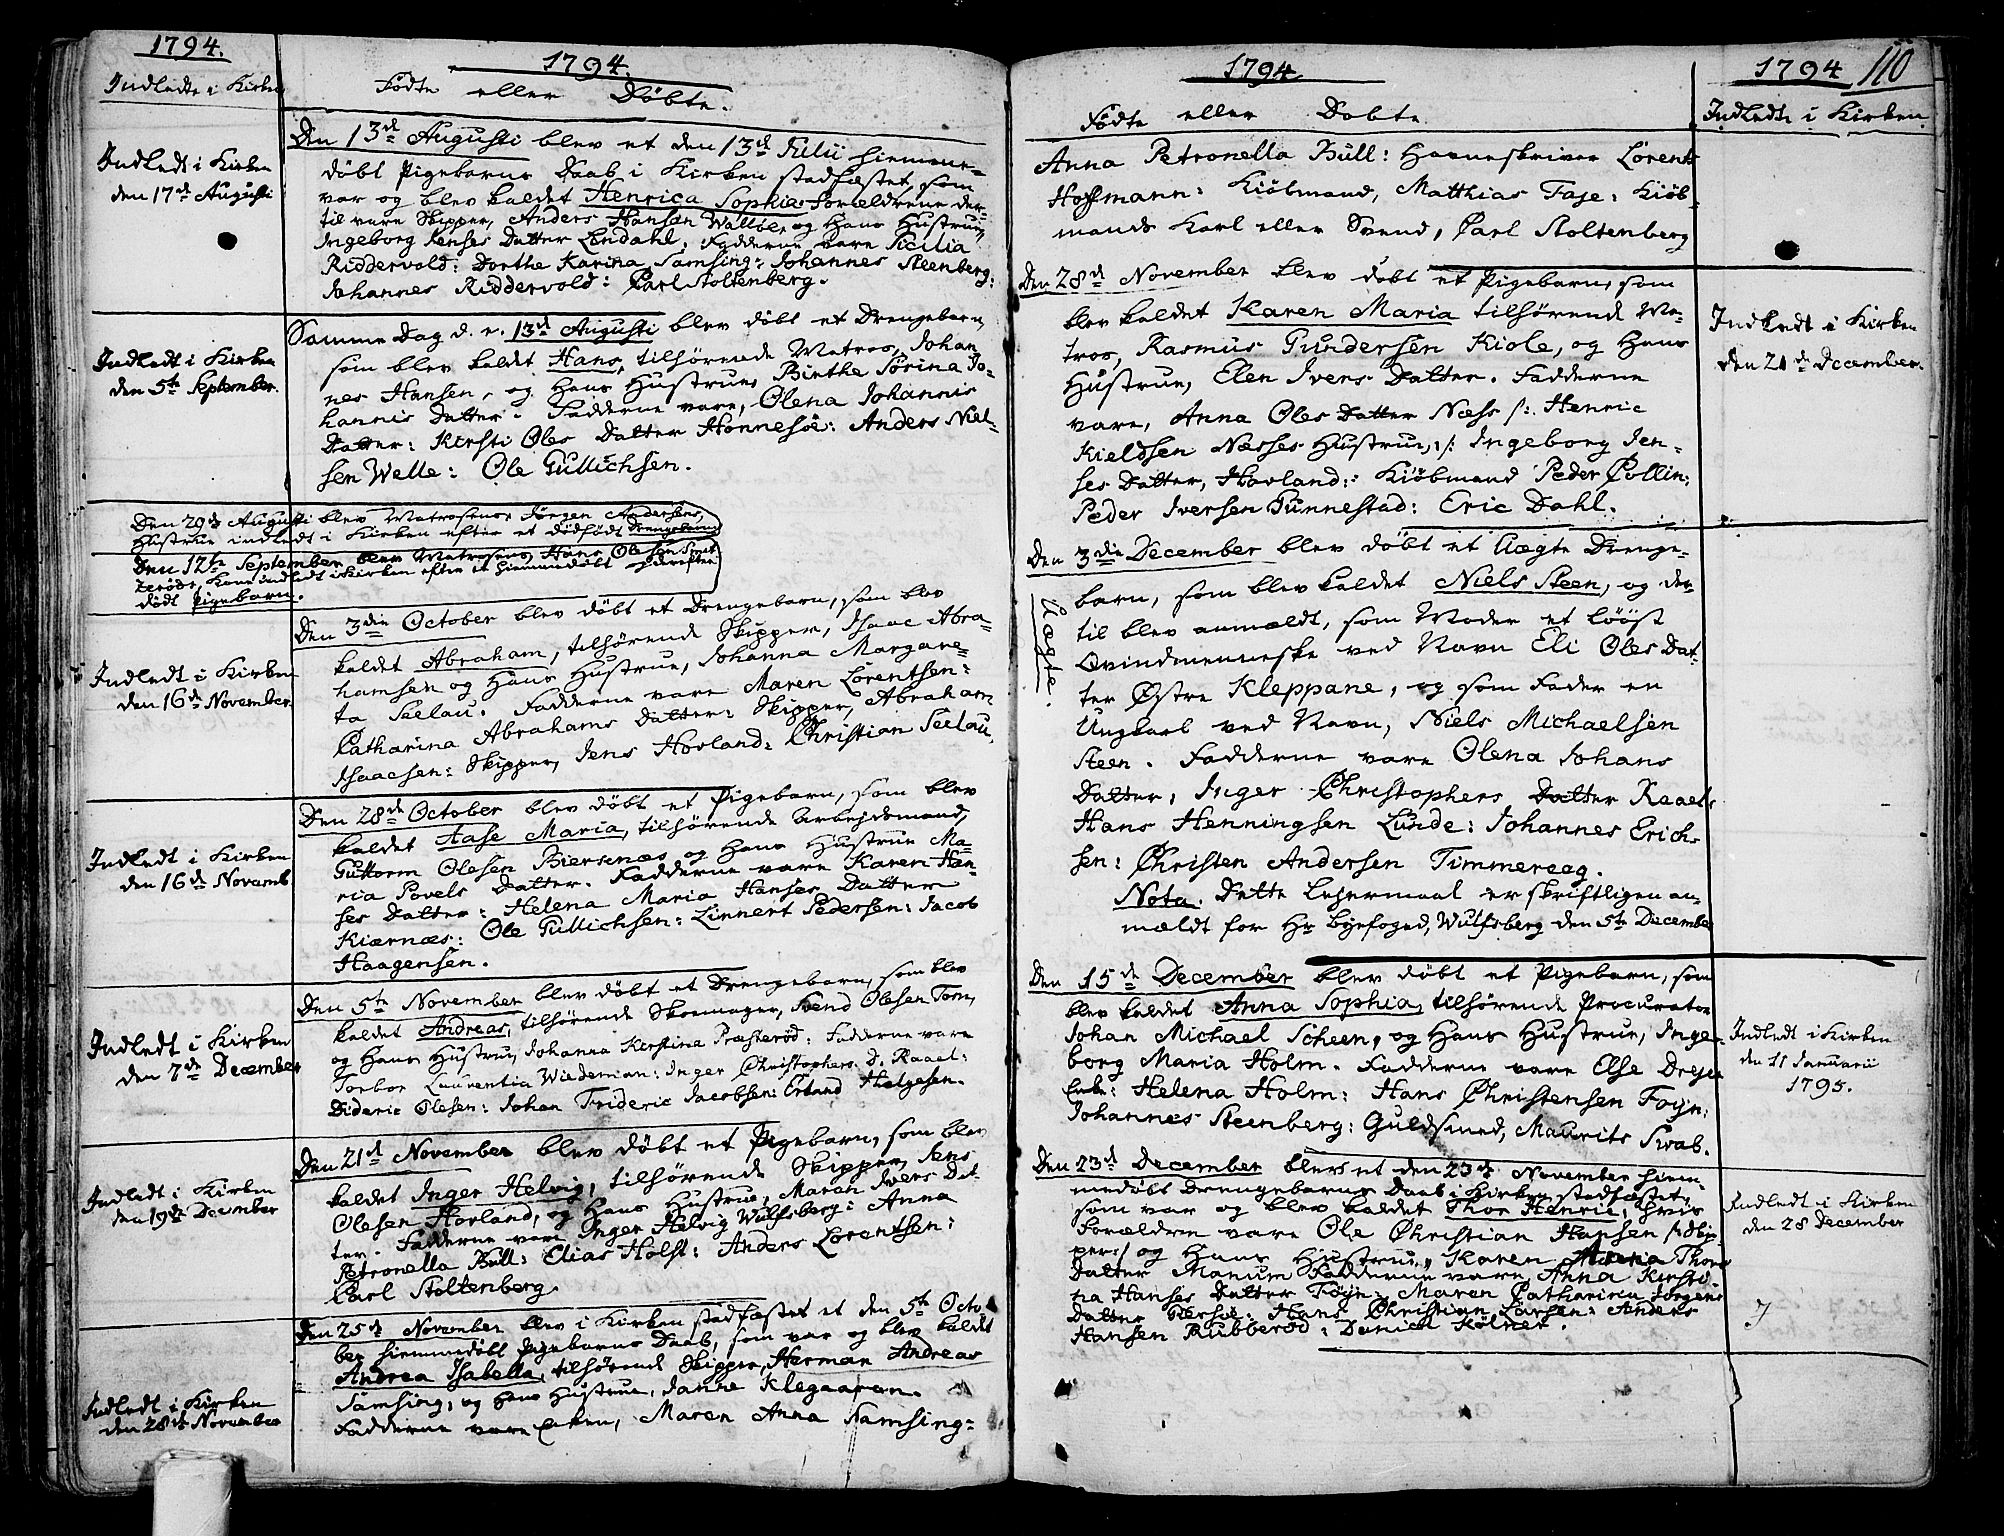 1794.
Indledte i Kirken
1794.
Fødte eller Døbte.
Indledt i Kirken
den 17de Augusti
Den 13de Augusti blev et den 13de Julii hiemme-
døbt Pigebarns Daab i Kirken stadfæstet, som
var og blev kaldet Henrica Sophia. Forældrene der-
til vare Skipper, Anders Hansen Wallbe, og Hans Hustrue,
Ingeborg Jenses Datter Lindahl. Fadderne vare Sicilia
Riddervold: Dorthe Karina Samsing: Johannes Steenberg:
Johannes Riddervold: Carl Stoltenberg.
Indledt i Kirken
den 5te September.
Samme Dag d. e. 13de Augusti blev døbt et Drengebarn,
som blev kaldet Hans, tilhørende Matros, Johan-
nes Hansen, og Hans Hustrue, Birthe Sørina Jo-
hannis Datter. Fadderne vare, Olena Johannis
Datter: Kirsti Oles Datter Honnesøe: Anders Niel-
sen Welle: Ole Gullichsen.
Den 29de Augusti blev Matrosens Jørgen Andersens,
Hustrue indledt i Kirken efter et dødfødt Drengebarn
Den 12te September blev Matrosens Hans Olesen
Kone indledt i Kirken efter et hiemmedøbt derefter
dødt Pigebarn.
Indledt i Kirken
den 16de November.
Den 3die October blev døbt et Drengebarn, som blev
kaldet Abraham, tilhørende Skipper, Isaac Abra-
hamsen og Hans Hustrue, Johanna Margare-
ta Seelau. Fadderne vare Maren Lorentsen:
Catharina Abrahams Datter: Skipper, Abraham
Isaacsen: Skipper, Jens Hovland: Christian Seelau.
Indledt i Kirken
den 16de Novemb.
Den 28de October blev døbt et Pigebarn, som blev
kaldet Aase Maria, tilhørende Arbejdsmand,
Guttorm Olesen Biersenæs og Hans Hustrue Ma-
ria Povels Datter. Fadderne vare Karen Han-
ses Datter: Helena Maria Hanses Datter
Kiærnæs: Ole Gullichsen: Linnert Pedersen: Jacob
Haagensen.
Indledt i Kirken
den 7de December
Den 5te November blev døbt et Drengebarn, som blev
kaldet Andreas, tilhørende Skoemager, Svend Olesen Tom,
og Hans Hustrue, Johanna Kerstina Præsterød: Fadderne vare
Torbor Laurentia Wiedeman: Inger Christophers D. Kaael:
Dideric Olesen: Johan Frideric Jacobsen: Erland Helgesen.
Indledt i Kirken
den 19de December
Den 21de November blev døbt et Pigebarn, som blev
kaldet Inger Helvig, tilhørende Skipper, Jens
Olesen Hovland, og Hans Hustrue, Maren Ivers Dat-
ter. Fadderne vare Inger Helvig Wulfsberg: Anna
Petronella Bull: Elias Holst: Anders Lorentsen:
Carl Stoltenberg.
Indledt i Kirken
den 28de November
Den 25de November blev i Kirken stadfæstet et den 5te Octo-
ber hiemmedøbt Pigebarns Daab, som var og blev kaldet
Andrea Isabella, tilhørende Skipper, Herman Andreas
Samsing, og Hans Hustrue, Janne Klegaaren.
Fadderne vare Enken, Maren Anna Samsing:
1794
Fødte eller Døbte
1794 110
Indledte i Kirken
Anna Petronella Bull: Havneskriver Lorents
Hoffmann: Kiøbmand, Matthias Faje: Kiøb-
mands Karl eller Svend, Carl Stoltenberg
Den 28de November blev døbt et Pigebarn, som
blev kaldet Karen Maria tilhørende Ma-
tros, Rasmus Gundersen Kiole, og Hans
Hustrue, Elen Ivers Datter. Fadderne
vare, Anna Oles Datter Næss /: Henric
Kieldsen Næsses Hustrue, :/ Ingeborg Jen-
ses Datter, Hovland: Kiøbmand Peder Collin:
Peder Iversen Gunnestad: Eric Dahl.
Indledt i Kirken
den 21de December.
Den 3die December blev døbt et Uægte Drenge-
barn, som blev kaldet Niels Steen, og der-
til blev anmældt, som Moder et Løøst
Qvindmenneske ved Navn Eli Oles Dat-
ter Østre Kleppane, og som Fader en
Ungkarl ved Navn, Niels Michaelsen
Steen. Fadderne vare Olena Johans
Datter, Inger Christophers Datter Kaael:
Hans Henningsen Lunde: Johannes Erich-
sen: Christen Andersen Timmeraag.
Nota. Dette Lejermaal er skriftligen an-
mældt for Hr Byefoged, Wulfsberg den 5te December
Uægte.
Den 15de December blev døbt et Pigebarn, som
blev kaldet Anna Sophia, tilhørende Procurator
Johan Michael Scheen, og Hans Hustrue, Inge-
borg Maria Holm. Fadderne vare Else Dreyer
Enke: Helena Holm: Hans Christensen Foyn:
Johannes Steenberg: Guldsmed, Maurits Swab.
Indledt i Kirken
den 11 Januarii
1795.
Den 23de December blev et den 23de November hiem-
medøbt Drengebarns Daab i Kirken stadfæstet,
som var og blev kaldet Thor Henric, hvis
Forældre vare Ole Christian Hansen /: Skip-
per :/ og Hans Hustrue, Karen Thors
Datter Manum. Fadderne vare, Anna Kirsti-
na Hanses Datter Foyn: Maren Catharina Jørgens
Datter: Hans Christian Larsen: Anders
Hansen Rubberød: Daniel Kølner.
Indledt i Kirken
den 28 December